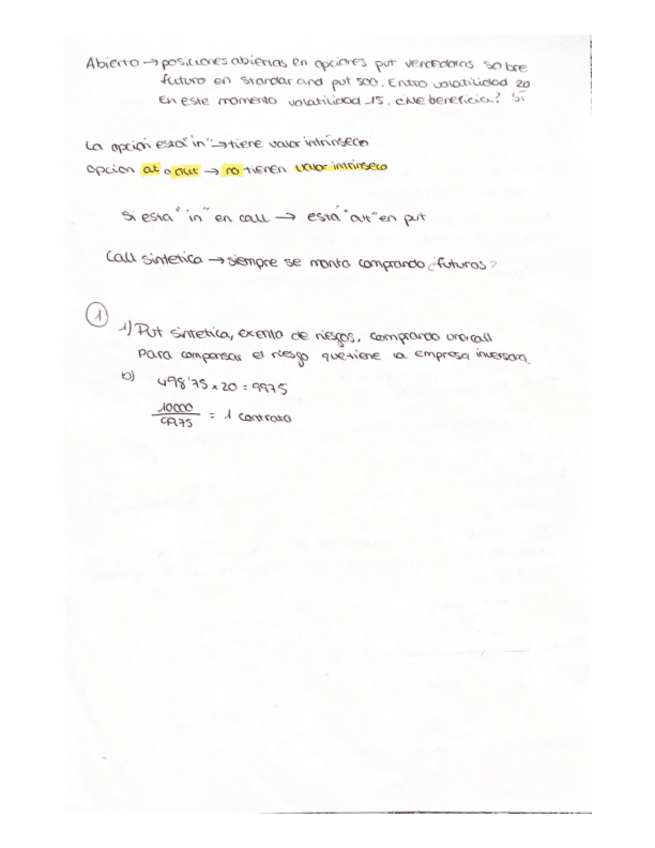 Abierto → posiciones abiertas en opciones put vendedoras sobre
futuro en standar and put 500. Entro volatilidad 20
En este momento volatilidad 15. ¿Me beneficia? SÍ
La opción está "in" → tiene valor intrínseco
opcion at o out → no tienen valor intrinseco
si esta "in" en call → está "out" en put
Call sintetica → siempre se monta comprando ¿futuros?
1
1) Put sintetica, exenta de riesgos, comprando una call
para compensar el riesgo que tiene la empresa inversora.
b) 498'75 x 20 = 9975
10000
9975 = 1 contrato